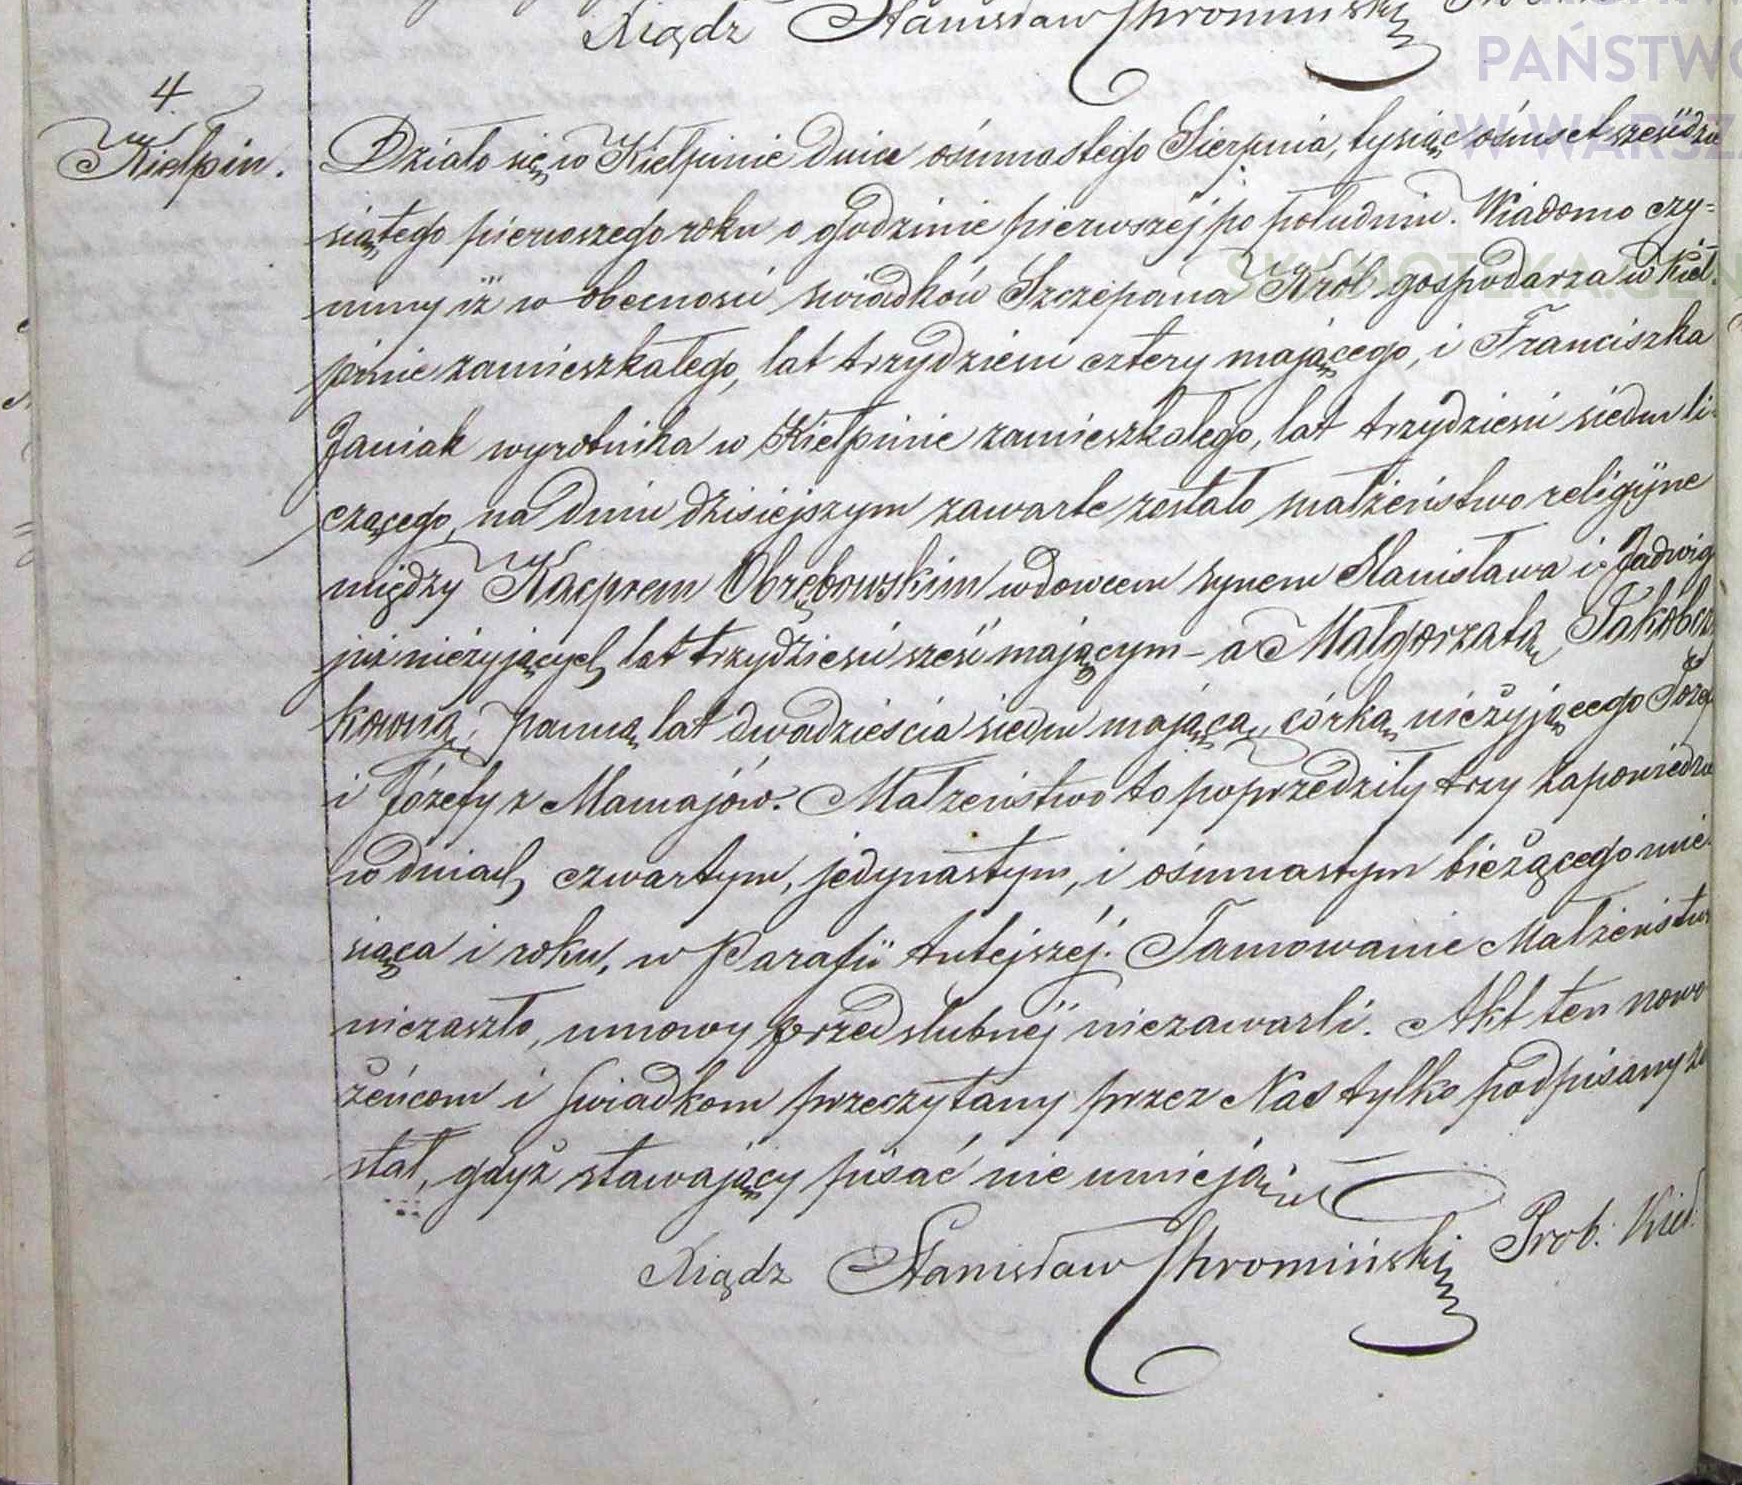 Xiądz Stanisław Chromiński
PAŃSTWO
W WARSZ
4
Kiełpin.
Działo się w Kiełpinie dnia ośmnastego Sierpnia, tysiąc ośmset sześćdzie
siątego pierwszego roku o godzinie pierwszéj po południu. Wiadomo czy=
nimy iż w obecności świadków Szczepana Król gospodarza w Kieł
pinie zamieszkałego, lat trzydzieści cztery mającego, i Franciszka
Janiak wyrobnika w Kiełpinie zamieszkałego, lat trzydzieści siedm li
czącego, na dniu dzisiejszym zawarte zostało małżeństwo religijne
między Kacprem Obrębowskim wdowcem synem Stanisława i Jadwig
już nieżyjących lat trzydzieści sześć mającym - a Małgorzatą Jakóbcz
kowną, panną lat dwadzieścia siedm mającą, córką nieżyjącego Józef
i Józefy z Mamajów. Małżeństwo to poprzedziły trzy zapowiedzie
w dniach czwartym, jedynastym, i ośmnastym bieżącego mie
siąca i roku, w Parafii tutejszéj. Tamowanie Małżeństwa
niezaszło, umowy przedślubnéj niezawarli. Akt ten nowo
żeńcom i świadkom przeczytany przez Nas tylko podpisany zo
stał, gdyż stawający pisać nie umieją.
Xiądz Stanisław Chromiński Prob. Kieł.